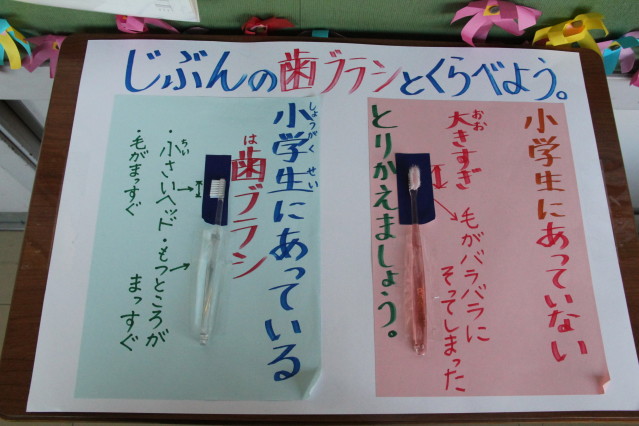 じぶんの歯ブラシとくらべよう。
小学生にあっていない
大きすぎ
おお
毛がバラバラに
そってしまった
とりかえましょう。
小学生にあっている
しょうがく せい
歯ブラシ
は
・小さいヘッド
ちい
・毛がまっすぐ
・もつところが
まっすぐ